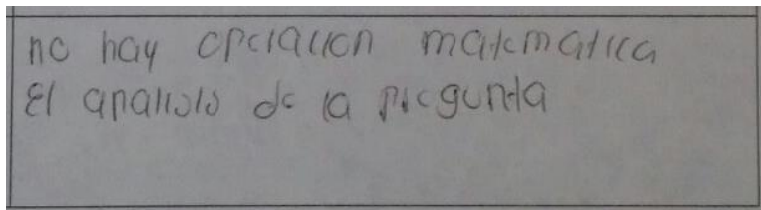 no hay operacion matematica
El analisis de la pregunta